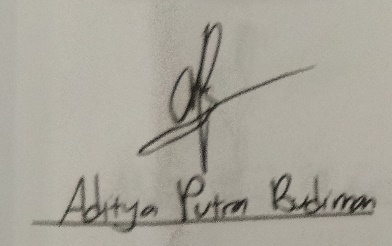 Aditya Putra Budiman